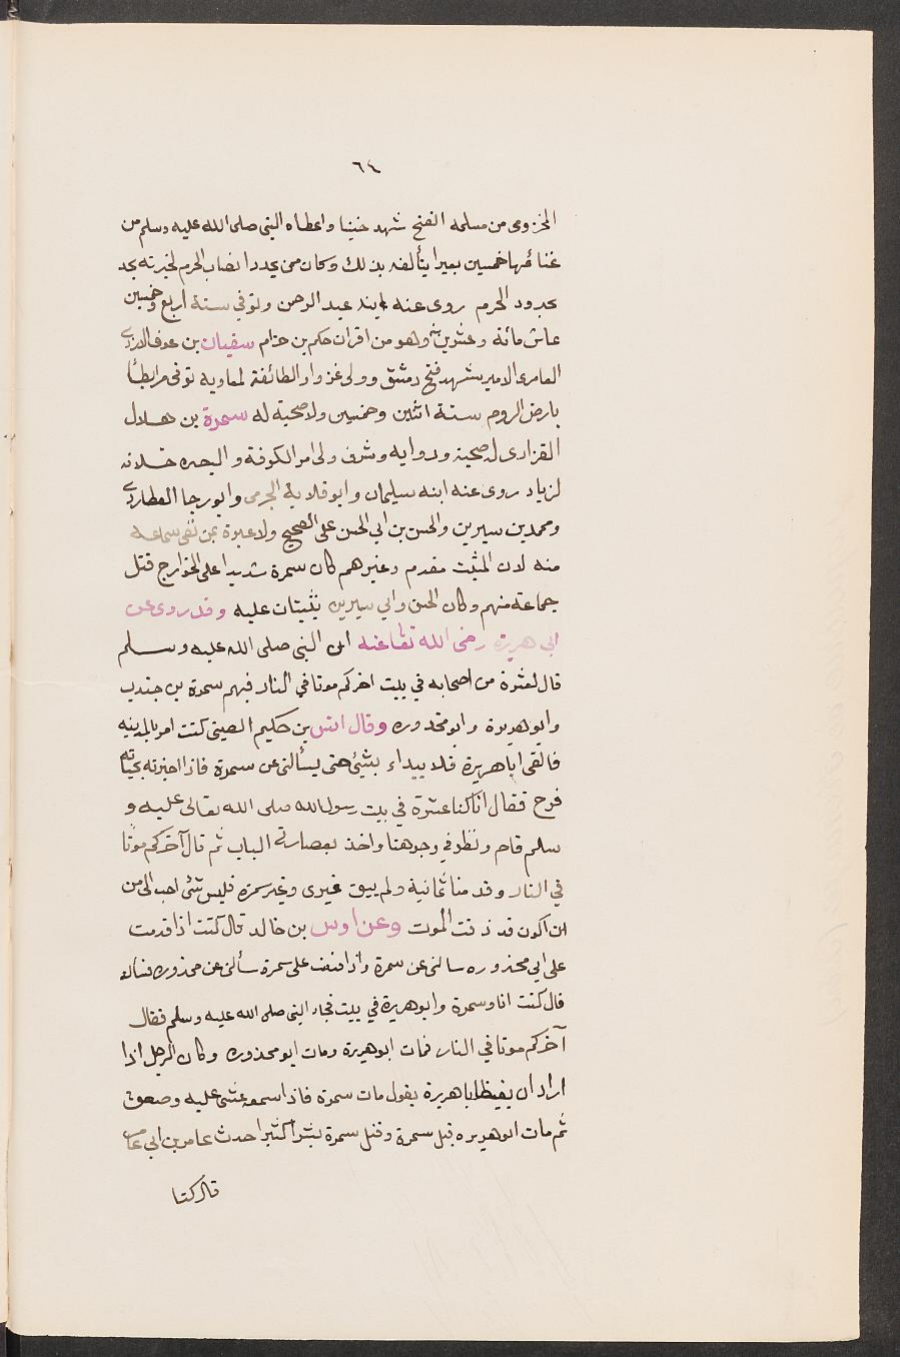 ٦٤
المخزومى من مسلمه الفتح شهد حنينا واعطاه النبى صلى الله عليه وسلم من
غنائمها خمسين بعيرا يتألفه بذلك وكان ممن يجدد انصاب الحرم لخبرته بحد
بحدود الحرم روى عنه ابنه عبد الرحمن وتوفي سنة اربع وخمسين
عاش مائة وعشرين سنة وهو من اقران حكم بن حزام سفيان بن عوف الازدى
العامرى الامير شهد فتح دمشق وولى غزوار الطائفة لمعاويه توفى مرابطًا
بارض الروم سنة اثنين وخمسين ولا صحبة له سمرة بن هلال
الفزارى له صحبة وروايه وشرف ولى امر الكوفة و البصره خلافه
لزياد روى عنه ابنه سليمان وابو قلابة الجرمى وابو رجا العطاردى
ومحمد بن سيرين والحسن بن ابي الحسن على الصحيح ولا عبرة بمن نفى سماعه
منه لان المثبت مقدم وغيرهم كان سمرة شديدا على الخوارج قتل
جماعة منهم وكان الحسن وابي سيرين يثبتان عليه وقد روى عن
ابى هريرة رضى الله تعا عنه ان النبى صلى الله عليه وسلم
قال لعشرة من اصحابه في بيت اخركم موتا في النار فيهم سمرة بن جندب
وابو هريرة وابو محذوره وقال انس بن حكيم الصبى كنت امر بالمدينه
فالقى اباهريرة فلا يبداء بشئ حتى يسألنى عن سمرة فاذا اخبرته بحياته
فرح فقال انا كنا عشرة في بيت رسول الله صلى الله تعالى عليه و
سلم قام ونظر في وجوهنا واخذ بعضادتي الباب ثم قال آخركم موتا
في النار وقد منا ثمانية ولم يبق غيرى وغير سمره فليس شئ احب الى من
ان اكون قد ذقت الموت وعن اوس بن خالد قال كنت اذا قدمت
على ابي محذوره سالنى عن سمرة واذا قدمت على سمرة سألنى عن محذوره
قال كنت انا وسمرة وابو هريرة في بيت فجاء النبى صلى الله عليه وسلم فقال
آخركم موتا في النار فمات ابو هريرة ومات ابو محذوره وكان الرجل اذا
اراد ان يغيظ اباهريرة يقول مات سمرة فاذا سمعه غشى عليه وصعق
ثم مات ابو هريره قبل سمرة وقتل سمرة بشرا كثيرا حدث عامر بن ابى عامر
قال كنا